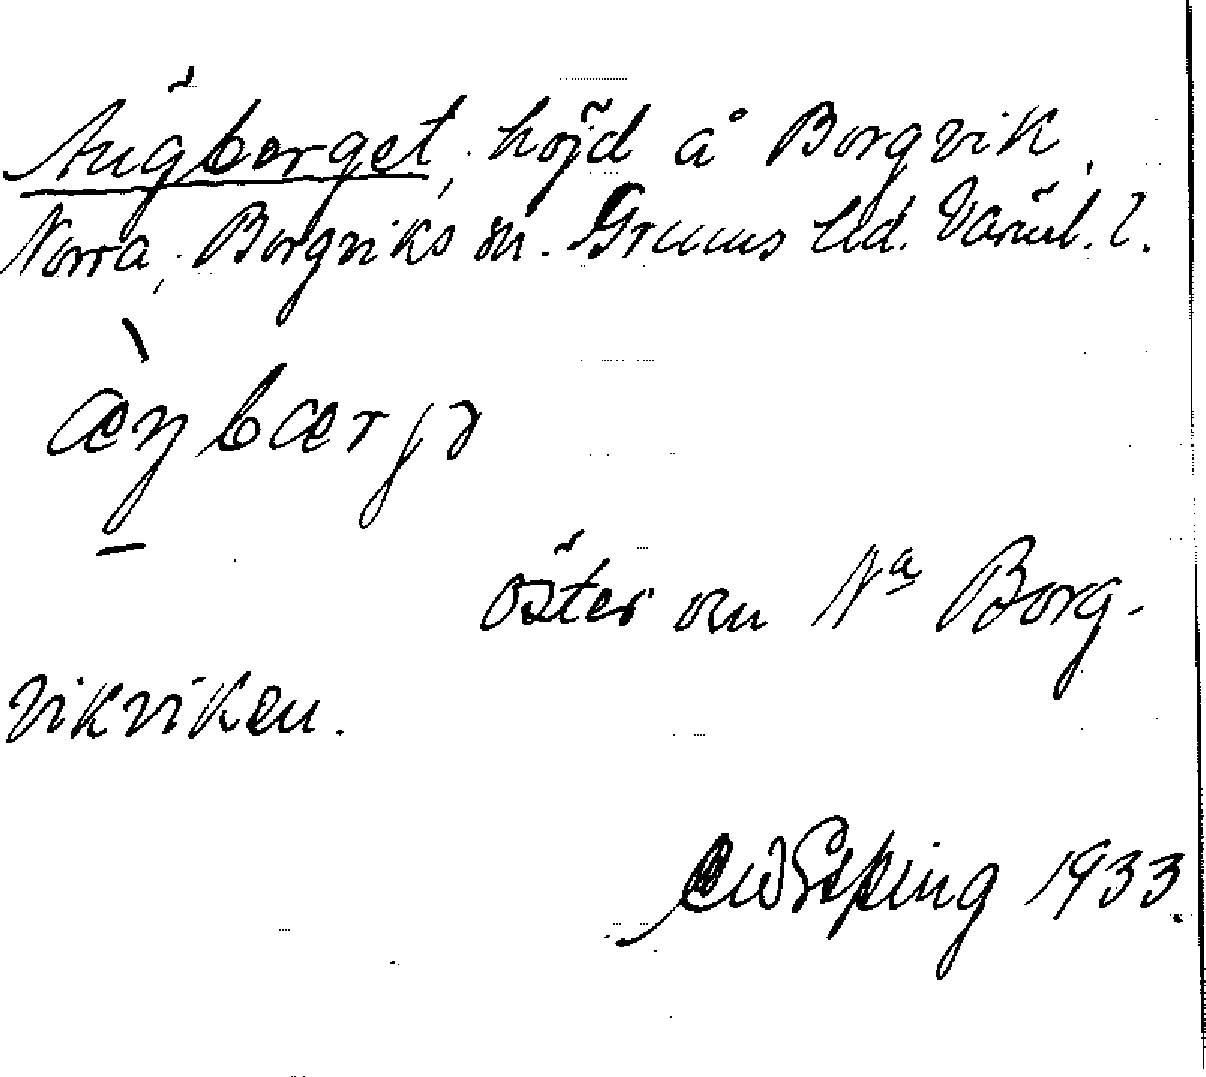 Ängberget, höjd å Borgvik,
Norra, Borgviks sn. Grums hd. Värml. l.
`æŋbærjə
öster om Nª Borg-
vikviken.
1933.